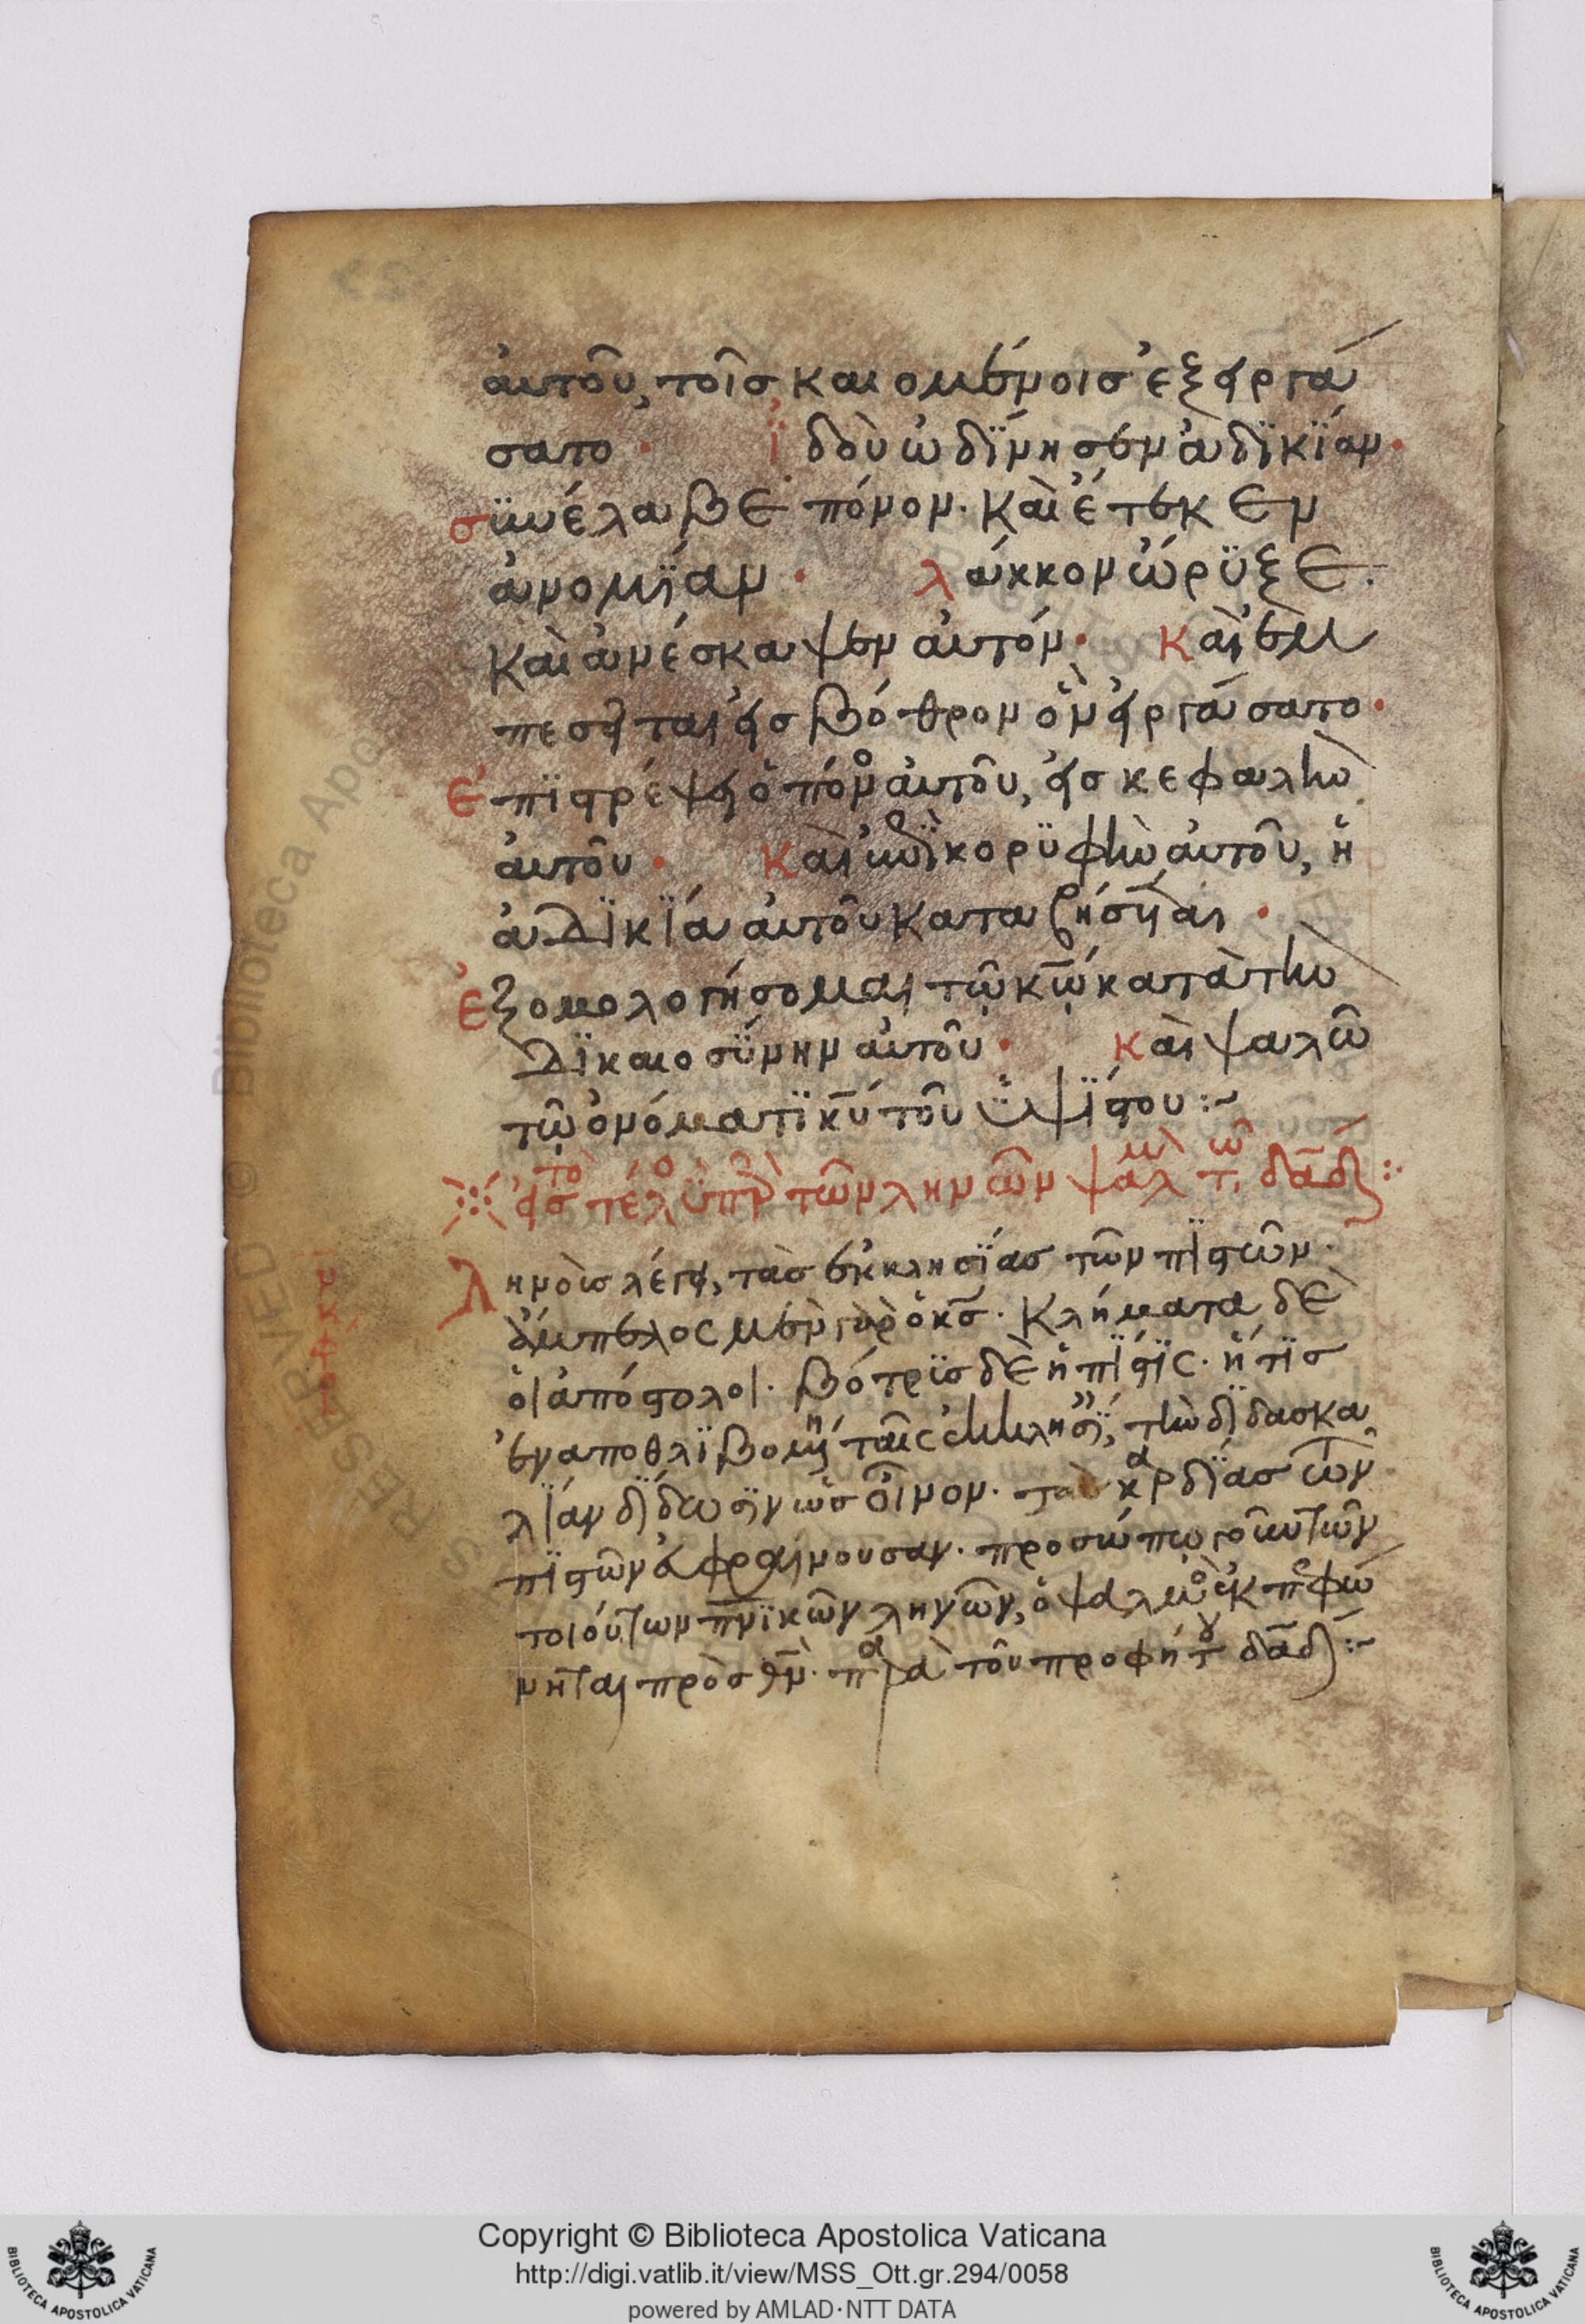 αὐτοῦ, τοῖσ καιομένοισ ἐξειργά
σατο · ϊδοὺ ὠδΐνησεν ἀδϊκΐαν·
σϋνέλαβε πόνον· καὶ ἔτεκεν
ἀνομΐαν · λάκκον ὤρϋξε·
καὶ ἀνέσκαψεν αὐτόν· καὶ ἐμ
πεσεῖται εἰσ βόθρον ὃν εἰργάσατο·
ἐπϊστρέψει ὁ πόνο αὐτοῦ, εἰσ κεφαλὴν
αὐτοῦ · καὶ ἐπὶ κορϋφὴν αὐτοῦ, ἡ
ἀδϊκΐα αὐτοῦ καταβήσεται ·
ἐξομολογήσομαι τῷ κῷ κατὰ τὴν
δϊκαιοσΰνην αὐτοῦ · καὶ ψαλῶ
τῷ ὀνόματϊ κυ τοῦ ὑψΐστου :~
εἰσ τὸ τέλο ὑπὲρ τῶν ληνῶν ψαλμὸ τῶ δαδ :
Ληνοὺσ λέγει, τὰσ ἐκκλησΐασ τῶν πϊστῶν·
ἄμπελος μὲν γὰρ ὁ κσ· κλήματα δὲ
οἱ ἀπόστολοι· βότρϋσ δὲ ἡ πΐστϊς· ἥτϊσ
ἐναποθλϊβομένη ταῖς ἐκκλησΐαισ, τὴν δϊδασκα
λΐαν δΐδωσϊν ὡσ οἶνον· τὰσ καρδΐασ τῶν
πϊστῶν εὐφραίνουσαν· προσώπω γοῦν τῶν
τοιούτων πνϊκῶν ληνῶν, ὁ ψαλμὸ ἐκπεφώ
νηται πρὸσ θν· παρὰ τοῦ προφήτου δαδ :~
Copyright © Biblioteca Apostolica Vaticana
http://digi.vatlib.it/view/MSS_Ott.gr.294/0058
powered by AMLAD·NTT DATA
BIBLIOTECA APOSTOLICA VATICANA
BIBLIOTECA APOSTOLICA VATICANA